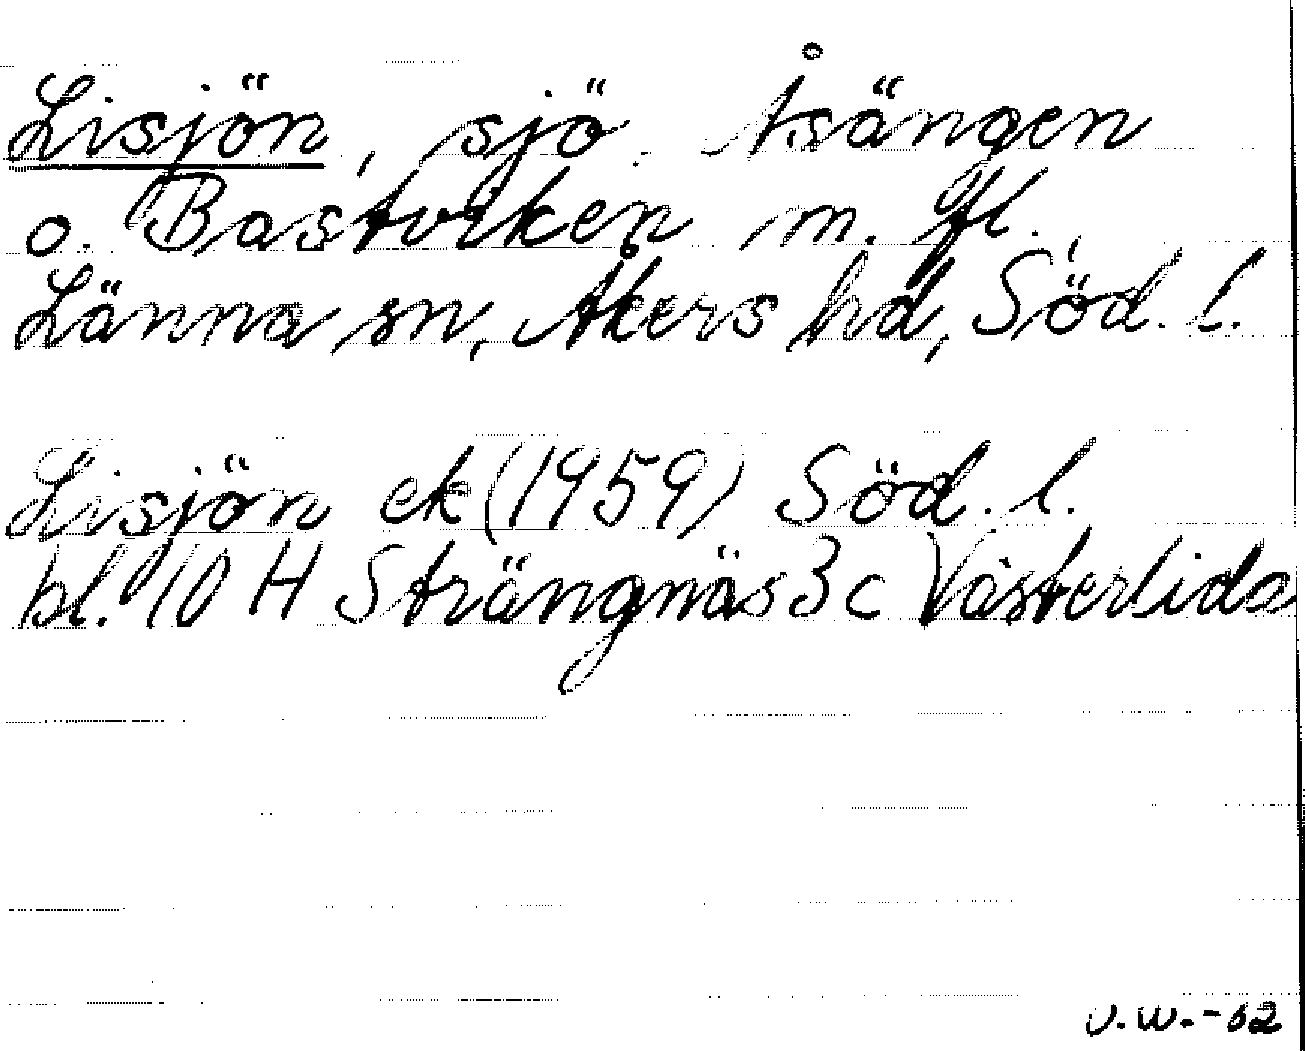 Lisjön, sjö. Åsängen
o. Bastviken m. fl.
Länna sn, Åkers hd, Söd. l.
Lisjön ek (1959) Söd. l.
bl. 10 H Strängnäs 3 c Västerlida
U.W.-62